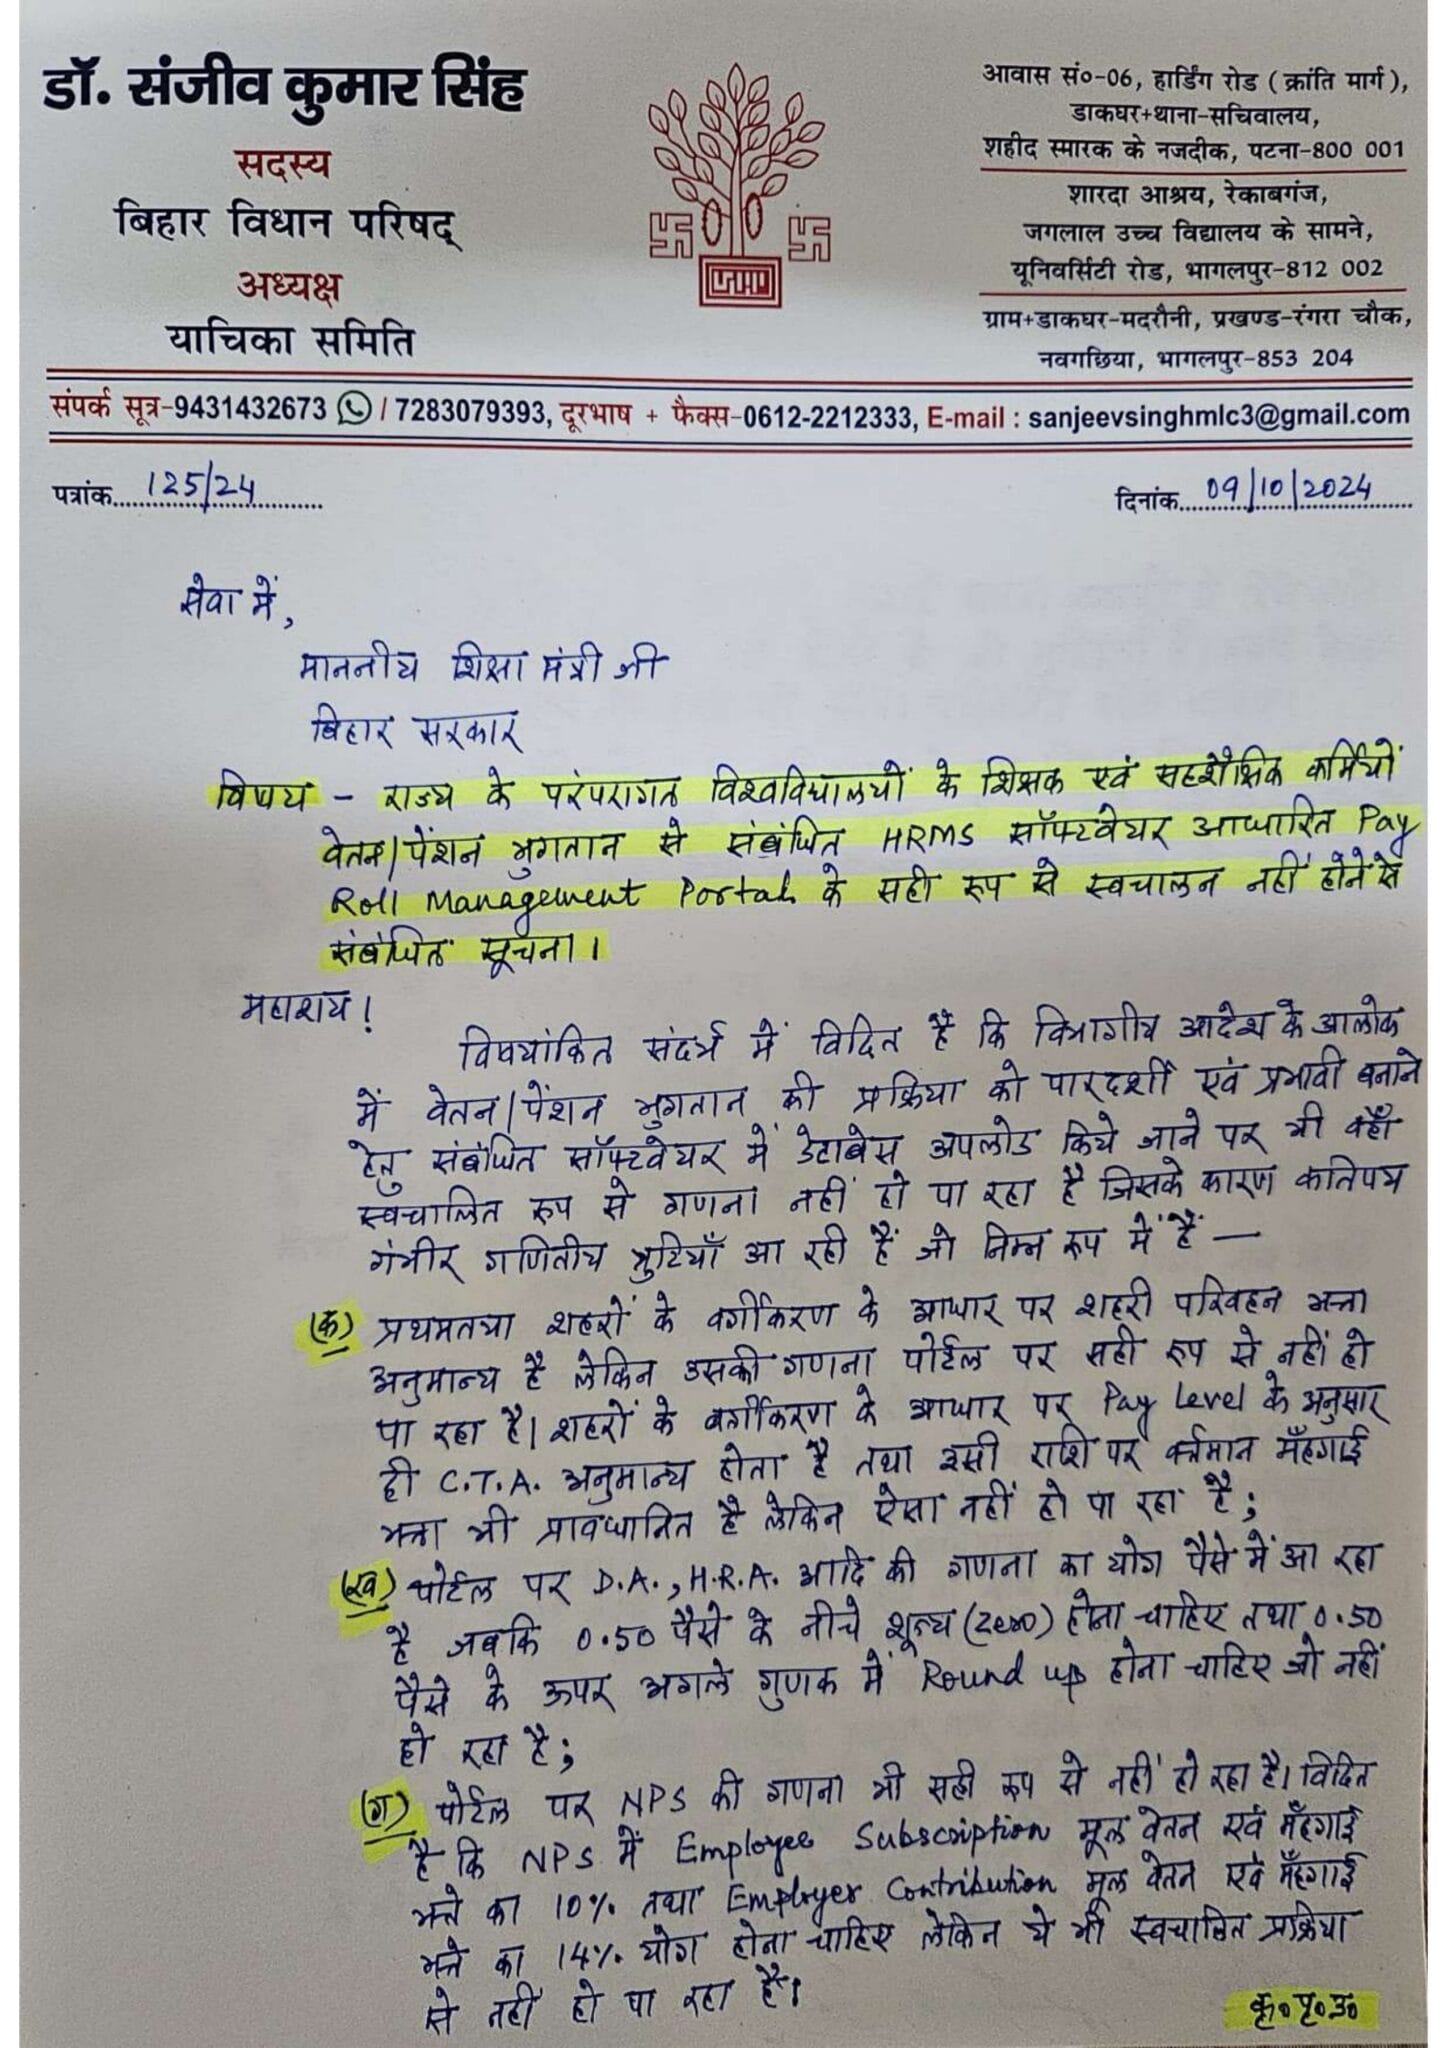 डॉ. संजीव कुमार सिंह
सदस्य
बिहार विधान परिषद्
अध्यक्ष
याचिका समिति
आवास सं०-06, हार्डिंग रोड ( क्रांति मार्ग ),
डाकघर+थाना-सचिवालय,
शहीद स्मारक के नजदीक, पटना-800 001
शारदा आश्रय, रेकाबगंज,
जगलाल उच्च विद्यालय के सामने,
यूनिवर्सिटी रोड, भागलपुर-812 002
ग्राम+डाकघर-मदरौनी, प्रखण्ड-रंगरा चौक,
नवगछिया, भागलपुर-853 204
संपर्क सूत्र-9431432673 / 7283079393, दूरभाष + फैक्स-0612-2212333, E-mail : sanjeevsinghmlc3@gmail.com
पत्रांक..125/24..........
दिनांक...09/10/2024....
सेवा में,
माननीय शिक्षा मंत्री जी
बिहार सरकार
विषय - राज्य के परंपरागत विश्वविद्यालयों के शिक्षक एवं सहशैक्षिक कर्मियों
वेतन/पेंशन भुगतान से संबंधित HRMS सॉफ्टवेयर आधारित Pay
Roll Management Portal के सही रूप से स्वचालन नहीं होने से
संबंधित सूचना।
महाशय!
विषयांकित संदर्भ में विदित है कि विभागीय आदेश के आलोक
में वेतन/पेंशन भुगतान की प्रक्रिया को पारदर्शी एवं प्रभावी बनाने
हेतु संबंधित सॉफ्टवेयर में डेटाबेस अपलोड किये जाने पर भी वहाँ
स्वचालित रूप से गणना नहीं हो पा रहा है जिसके कारण कतिपय
गंभीर गणितीय त्रुटियाँ आ रही हैं जो निम्न रूप में हैं —
(क) प्रथमतया शहरों के वर्गीकरण के आधार पर शहरी परिवहन भत्ता
अनुमान्य है लेकिन उसकी गणना पोर्टल पर सही रूप से नहीं हो
पा रहा है। शहरों के वर्गीकरण के आधार पर Pay Level के अनुसार
ही C.T.A. अनुमान्य होता है तथा इसी राशि पर वर्त्तमान मँहगाई
भत्ता भी प्रावधानित है लेकिन ऐसा नहीं हो पा रहा है;
(ख) पोर्टल पर D.A., H.R.A. आदि की गणना का योग पैसे में आ रहा
है जबकि 0.50 पैसे के नीचे शून्य (zero) होना चाहिए तथा 0.50
पैसे के ऊपर अगले गुणक में Round up होना चाहिए जो नहीं
हो रहा है;
(ग) पोर्टल पर NPS की गणना भी सही रूप से नहीं हो रहा है। विदित
है कि NPS में Employee Subscription मूल वेतन एवं मँहगाई
भत्ते का 10% तथा Employer Contribution मूल वेतन एवं मँहगाई
भत्ते का 14% योग होना चाहिए लेकिन ये भी स्वचालित प्रक्रिया
से नहीं हो पा रहा है।
कृ०पृ०उ०